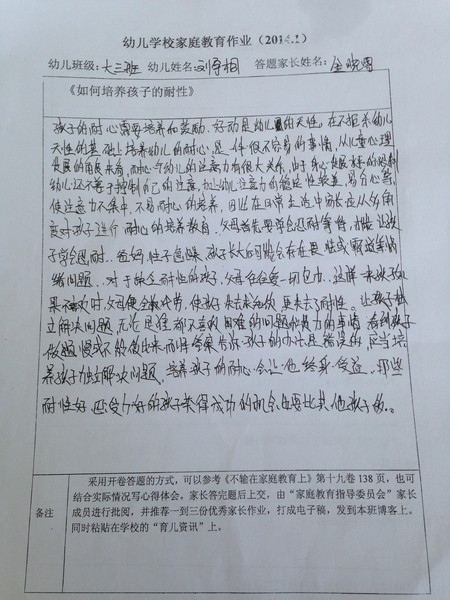 幼儿学校家庭教育作业（2014.1）
幼儿班级：大三班 幼儿姓名：刘 相 答题家长姓名：金晓
《如何培养孩子的耐性》
孩子的耐心需要培养和鼓励，好动是幼儿的天性，在不拒杀幼儿
天性的基础上培养幼儿的耐心，是一件很不容易的事情，从儿童心理
发展的角度来看，耐心与幼儿的注意力有很大关系，由于身心发展
幼儿还不善于控制自己的注意，加上幼儿注意力的稳定性较差，易分心等，
使注意力不集中，不易耐心的培养，因此在日常生活中家长应从多角
度对孩子进行耐心的培养教育，父母首先要学会忍耐等待，才能让孩
子学会忍耐，爸妈性子急躁，孩子长大后可能会存在畏
绪问题，对于缺乏耐性的孩子，父母往往爱一切包办，这样
果不 时，父母便会来代劳，使孩子失去 更失去了耐性。让孩子独
立解决问题，无论是谁都不喜欢困难的问题和费力的事情，看到孩子
做题慢或不能做出来而 答案告诉孩子的办法是错误的，应当培
养孩子独立解决问题，培养孩子的耐心会让他终身受益，那些
耐性好、忍受力好的孩子获得成功的机会也要比其他孩子多。
采用开卷答题的方式，可以参考《不输在家庭教育上》第十九卷 138 页，也可
结合实际情况写心得体会。家长答完题后上交，由“家庭教育指导委员会”家长
备注 成员进行批阅，并推荐一到三份优秀家长作业，打成电子稿，发到本班博客上。
同时粘贴在学校的“育儿资讯”上。